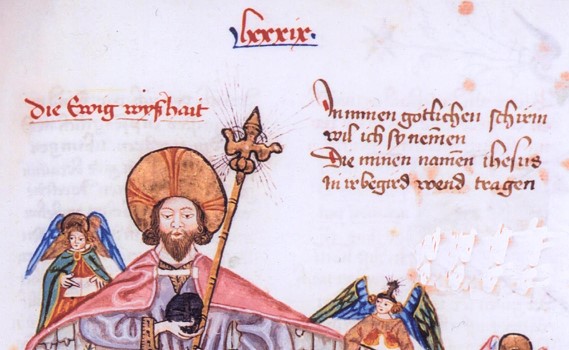 lxxxix.
die Ewig wyßhait
In minen gotlichen schirm
wil ich sy nemen
Die minen namen ihesus
in ir begird wend tragen